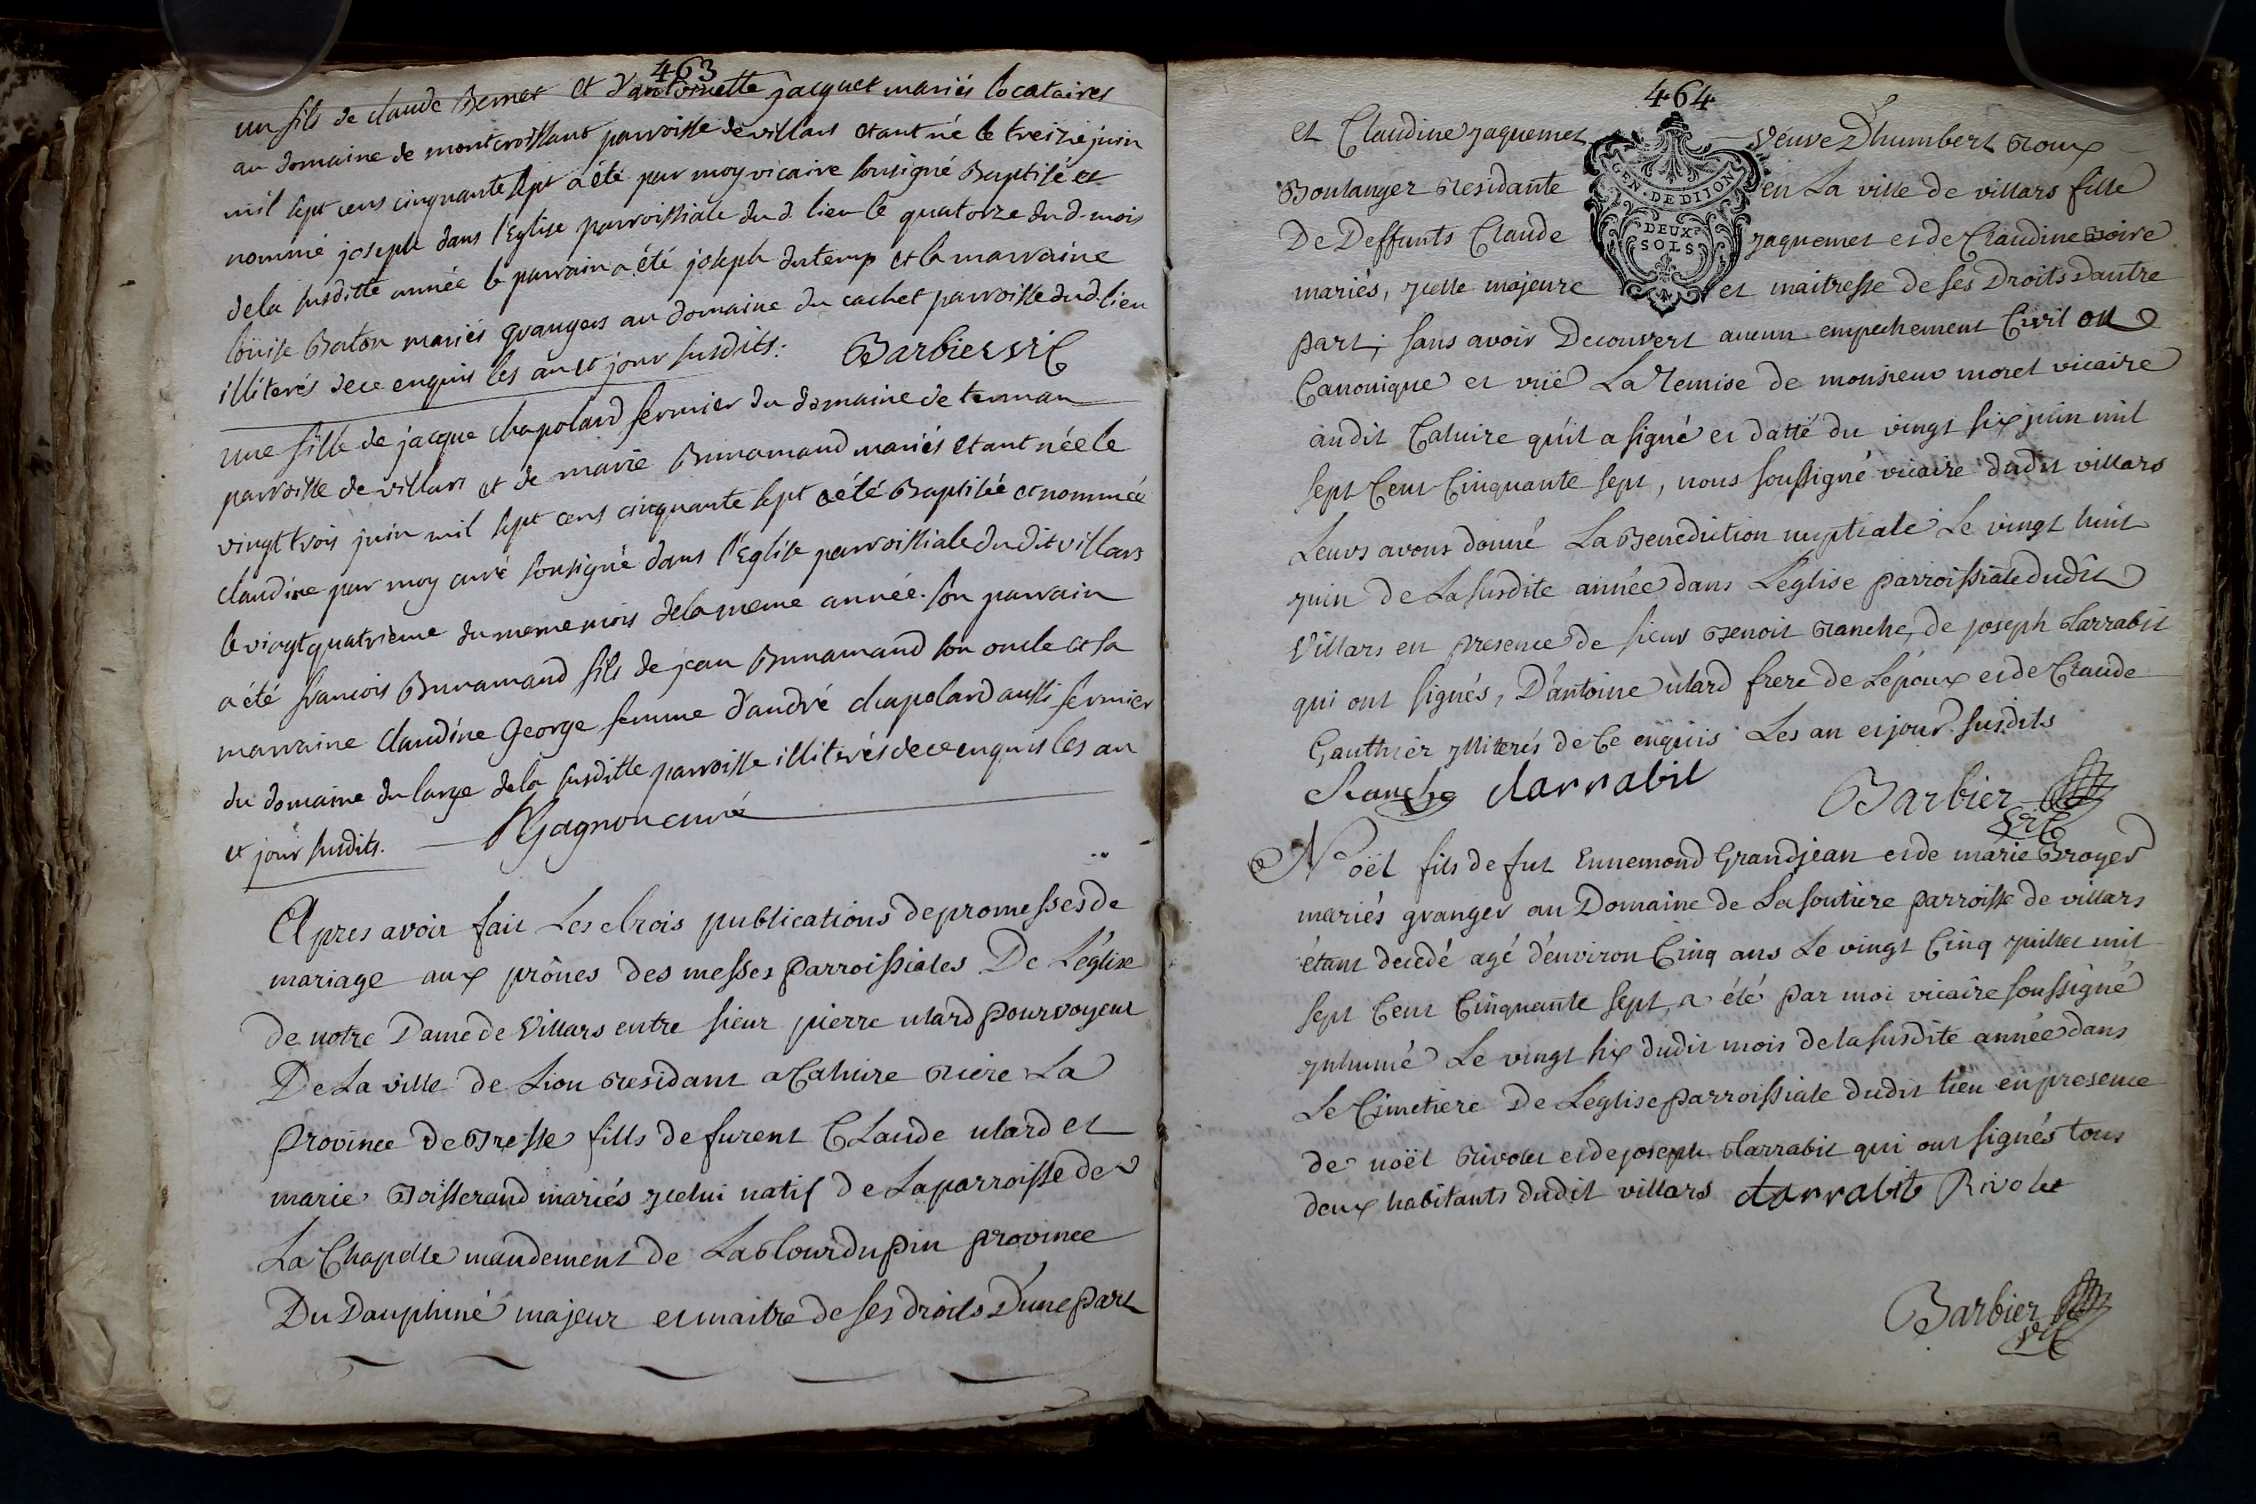 463
un fils de claude Bernet et D'antoinette jacquet mariés locataires
au domaine de montcroissant parroisse de villars etant né le treize juin
mil sept cens cinquante sept a été par moy vicaire sousigné Baptisé et
nommé joseph dans l'Eglise parroissiale du d. lieu le quatorze du d. mois
de la susditte année le parrain a été joseph dutemp et la marraine
loüise Boston mariés grangers au domaine du cachet parroisse dud. lieu
illiterés de ce enquis les an et jour susdits. Barbier vic
une fille de jacque chapolard fermier du domaine de ternan
parroisse de villars et de marie Brunamand mariés etant née le
vingt trois juin mil sept cens cinquante sept a été Baptisée et nommée
claudine par moy curé sousigné dans l'Eglise parroissiale du dit villars
le vingt quatrieme du meme mois de la meme année. son parrain
a été francois Brunamand fils de jean Brunamand son oncle et sa
marraine claudine George femme d'andré chapolard aussi fermier
du domaine du large de la susditte parroisse illiterés de ce enquis les an
et jour susdits. Gagnon curé
Apres avoir fait Les trois publications de promesses de
mariage aux prônes des messes parroissiales De L'église
de notre Dame de Villars entre sieur pierre utard pourvoyeur
De La ville de Lion residant a Caluire riere La
province de Bresse fills de furent Claude utard et
marie Boisserand mariés ycelui natif de La parroisse de
La Chapelle mandement de La tour du pin province
Du Dauphiné majeur et maitre de ses droits D'une part
464
et Claudine jaquemet veuve D'humbert Roux
GEN. DE DIJON
DEUX
SOLS
Boulanger residante en La ville de villars fille
De Deffunts Claude jaquemet et de Claudine voire
mariés, ycelle majeure et maitresse de ses Droits D'autre
part; sans avoir Decouvert aucun empechement Civil ou
Canonique et vüe La remise de monsieur moret vicaire
audit Caluire qu'il a signé et datté du vingt six juin mil
sept Cent Cinquante sept, nous soussigné vicaire dudit villars
Leurs avons donné La Benediction nuptiale Le vingt huit
juin de La susdite année dans L'église parroissiale dudit
Villars en presence de sieur Benoit Ranche, de joseph Tarrabit
qui ont signés, D'antoine utard frere de L'époux et de Claude
Gauthier ylliterés de Ce enquis Les an et jour susdits
Ranche tarrabit Barbier vic
Noël fils de fut Ennemond Grandjean et de marie Broyer
mariés granger au Domaine de La soutiere parroisse de villars
étant decedé agé d'environ Cinq ans Le vingt Cinq juillet mil
sept Cent Cinquante sept, a été par moi vicaire soussigné
ynhumé Le vingt six dudit mois de la susdite année dans
Le Cimetiere De L'église parroissiale dudit lieu en presence
de noël Rivolet et de joseph Tarrabit qui ont signés tous
deux habitants dudit villars tarrabit Rivolet
Barbier
vic